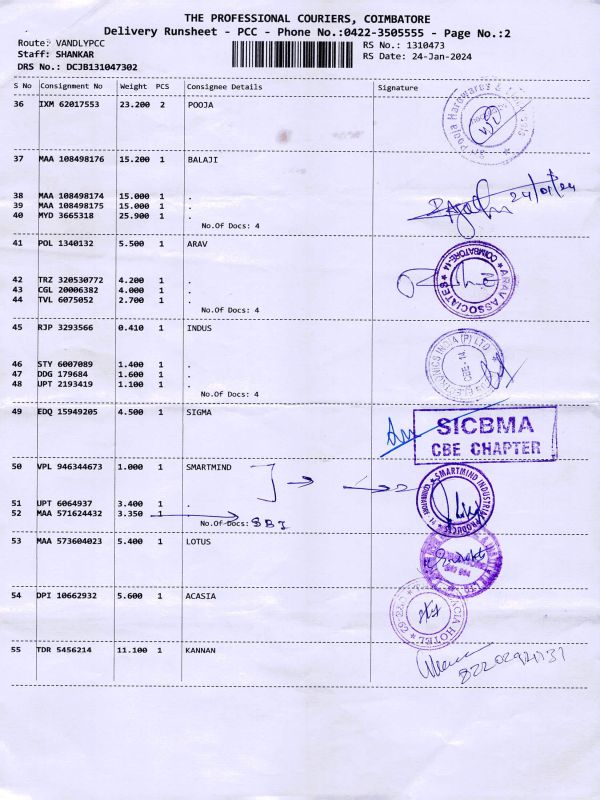 THE PROFESSIONAL COURIERS, COIMBATORE
Delivery Runsheet - PCC - Phone No.:0422-3505555 - Page No.:2
Route: VANDLYPCC
RS No.: 1310473
Staff: SHANKAR
RS Date: 24-Jan-2024
DRS No.: DCJB131047302
S No Consignment No Weight PCS Consignee Details Signature
36 IXM 62017553 23.200 2 POOJA
37 MAA 108498176 15.200 1 BALAJI
24/01/24
38 MAA 108498174 15.000 1 .
39 MAA 108498175 15.000 1 .
40 MYD 3665318 25.900 1 .
No.Of Docs: 4
41 POL 1340132 5.500 1 ARAV
ARAV ASSOCIATES * COIMBATORE-14 *
42 TRZ 320530772 4.200 1 .
43 CGL 20006382 4.000 1 .
44 TVL 6075052 2.700 1 .
No.Of Docs: 4
45 RJP 3293566 0.410 1 INDUS
CBE-14
46 STY 6007089 1.400 1 .
47 DDG 179684 1.600 1 .
48 UPT 2193419 1.100 1 .
No.Of Docs: 4
49 EDQ 15949205 4.500 1 SIGMA
SICBMA
CBE CHAPTER
50 VPL 946344673 1.000 1 SMARTMIND
SMARTMIND INDUSTRIAL PRODUCTS
51 UPT 6064937 3.400 1 .
52 MAA 571624432 3.350 1 .
No.Of Docs: SBI
53 MAA 573604023 5.400 1 LOTUS
54 DPI 10662932 5.600 1 ACASIA
HOTEL
55 TDR 5456214 11.100 1 KANNAN